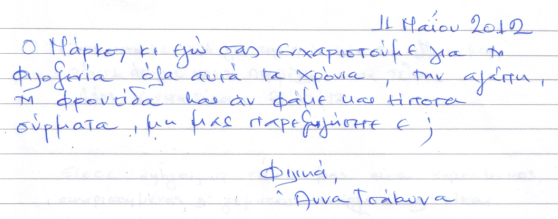 11 Μαΐου 2012
Ο Μάρκος κι εγώ σας ευχαριστούμε για τη
φιλοξενία όλα αυτά τα χρόνια, την αγάπη,
τη φροντίδα και αν φάμε και τίποτα
σύρματα, μη μας παρεξηγήσετε ε;
Φιλικά,
Άννα Τσάκωνα